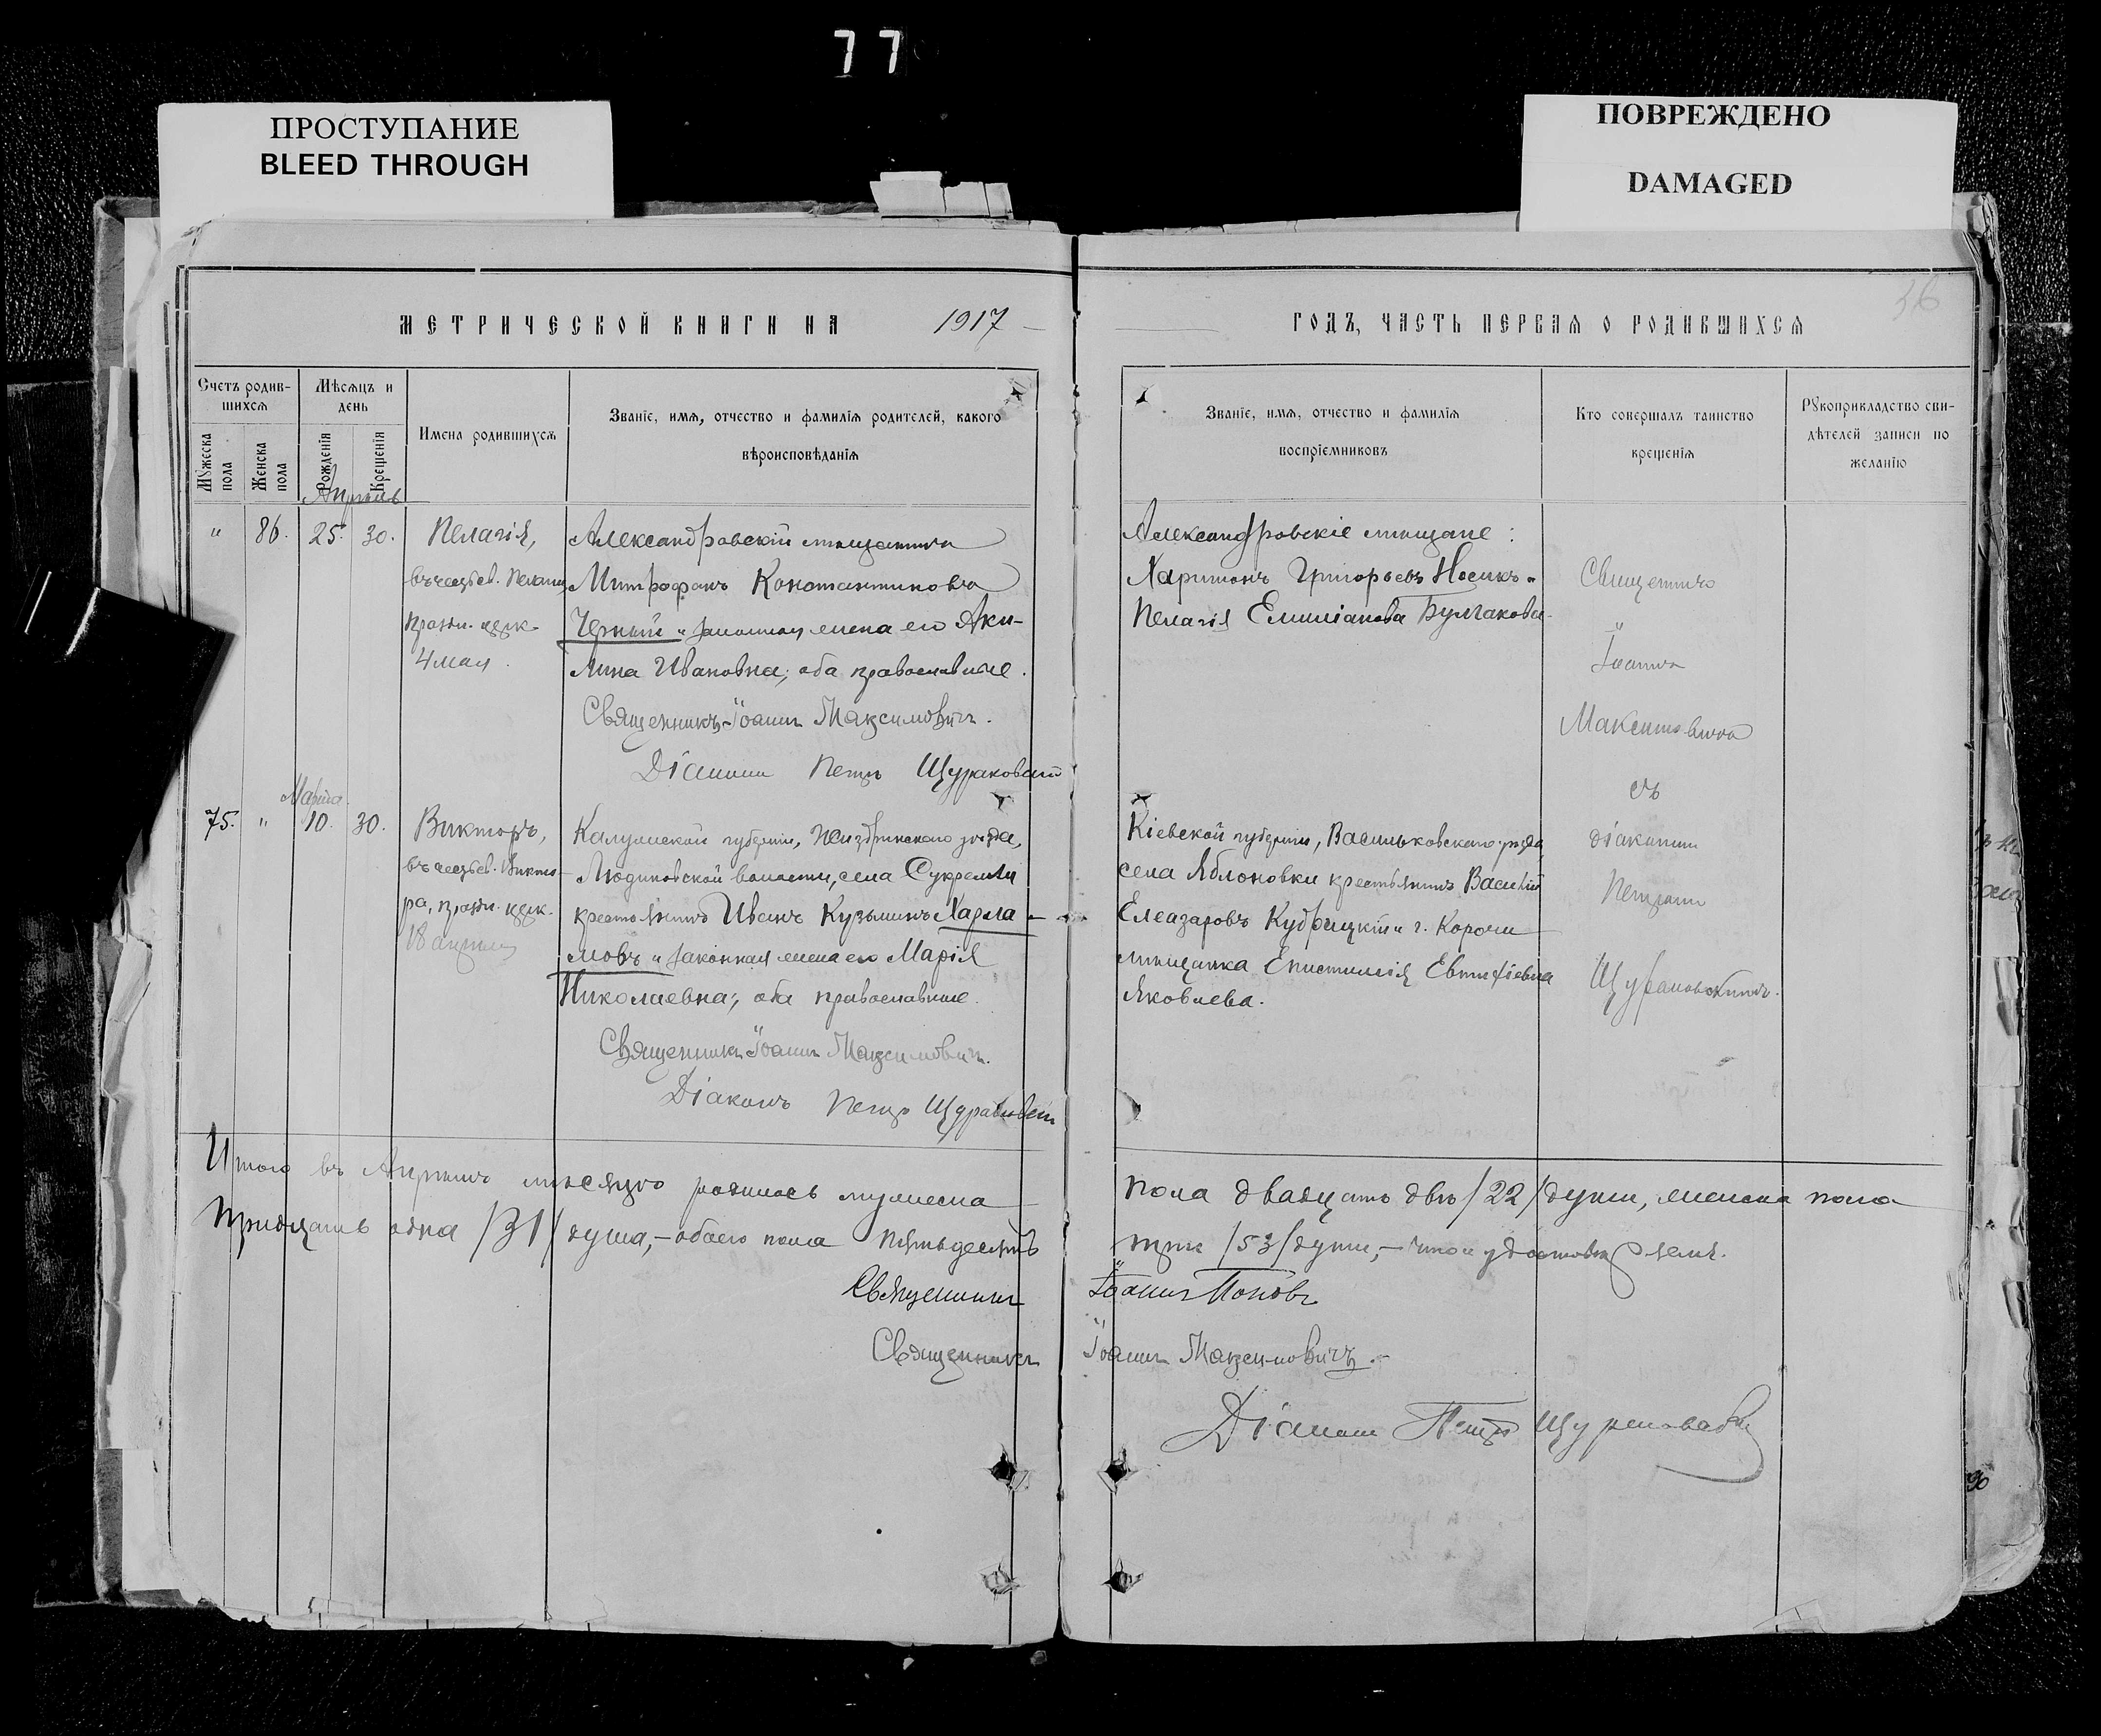 77
ПРОСТУПАНИЕ
BLEED THROUGH
ПОВРЕЖДЕНО
DAMAGED
36
МЕТРИЧЕСКОЙ КНИГИ НА 1917
ГОДЪ, ЧАСТЬ ПЕРВАЯ О РОДИВШИХСЯ
Счетъ родив-
шихся
Мужеска пола
Женска пола
Мѣсяцъ и
день
Рожденія
Крещенія
Имена родившихся
Званіе, имя, отчество и фамилія родителей, какого
вѣроисповѣданія
Званіе, имя, отчество и фамилія
воспріемниковъ
Кто совершалъ таинство
крещенія
Рукоприкладство сви-
дѣтелей записи по
желанію
Апрѣль
" 86. 25. 30.
Пелагія,
въ честь св. Пелагіи,
праздн. церк.
4 мая.
Александровскій мѣщанинъ
Митрофанъ Константиновъ
Черный и законная жена его Аки-
лина Ивановна; оба православные.
Священникъ Іоаннъ Максимовичъ.
Діаконъ Петръ Щураковскій
Александровскіе мѣщане:
Харитонъ Григорьевъ Носикъ и
Пелагія Емиліанова Булгакова.
Священникъ
Іоаннъ
Максимовичъ
съ
діакономъ
Петромъ
Щураковскимъ.
Марта
75. " 10. 30.
Викторъ,
въ честь св. Викто-
ра, праздн. церк.
18 апрѣля
Калужской губерніи, Жиздринскаго уѣзда,
Людиновской волости, села Сукремли
крестьянинъ Иванъ Кузьминъ Харла-
мовъ и законная жена его Марія
Николаевна; оба православные.
Священникъ Іоаннъ Максимовичъ.
Діаконъ Петръ Щураковскій
Кіевской губерніи, Васильковскаго уѣзда,
села Яблоновки крестьянинъ Василій
Елеазаровъ Кудрицкій и г. Корочи
мѣщанка Епистимія Евтихіевна
Яковлева.
Итого въ Апрѣлѣ мѣсяцѣ родилось мужеска
пола двадцать двѣ /22/ души, женска пола
тридцать одна /31/ душа,- обоего пола пятьдесятъ
три /53/ души,- что и удостовѣряемъ.
Священникъ Іоаннъ Поповъ
Священникъ Іоаннъ Максимовичъ.
Діаконъ Петръ Щураковскій